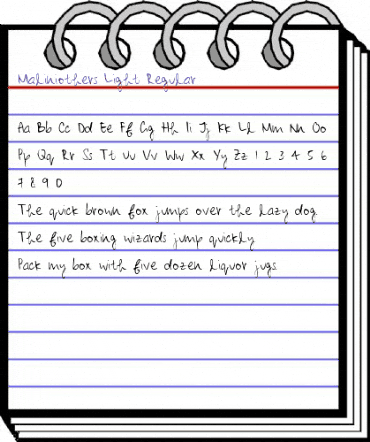 Maliniothers Light Regular
Aa Bb Cc Dd Ee Ff Gg Hh Ii Jj Kk Ll Mm Nn Oo
Pp Qq Rr Ss Tt Uu Vv Ww Xx Yy Zz 1 2 3 4 5 6
7 8 9 0
The quick brown fox jumps over the lazy dog.
The five boxing wizards jump quickly
Pack my box with five dozen liquor jugs.